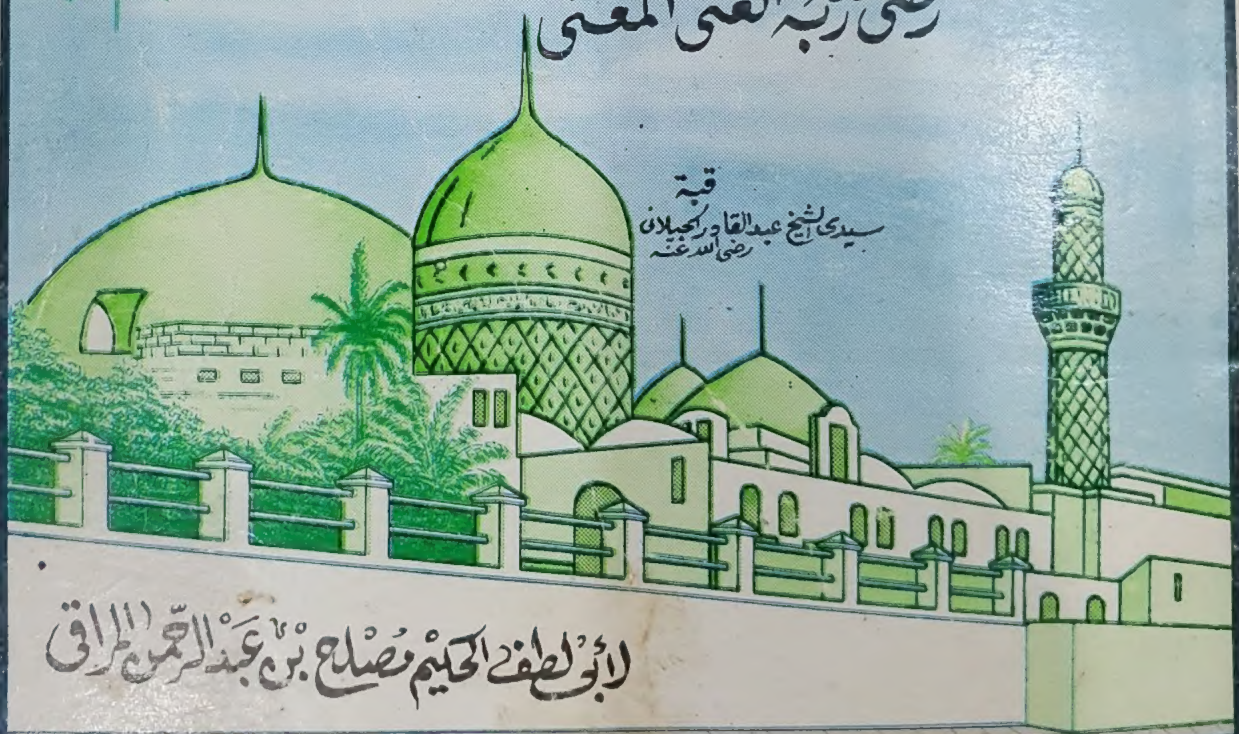 رضى ربه الغنى المغنى
قبة
سيدى الشيخ عبدالقادر الجيلانى
رضى الله عنه
لأبى لطفى الحكيم مصلح بْن عَبْدالرّحمن المراقى